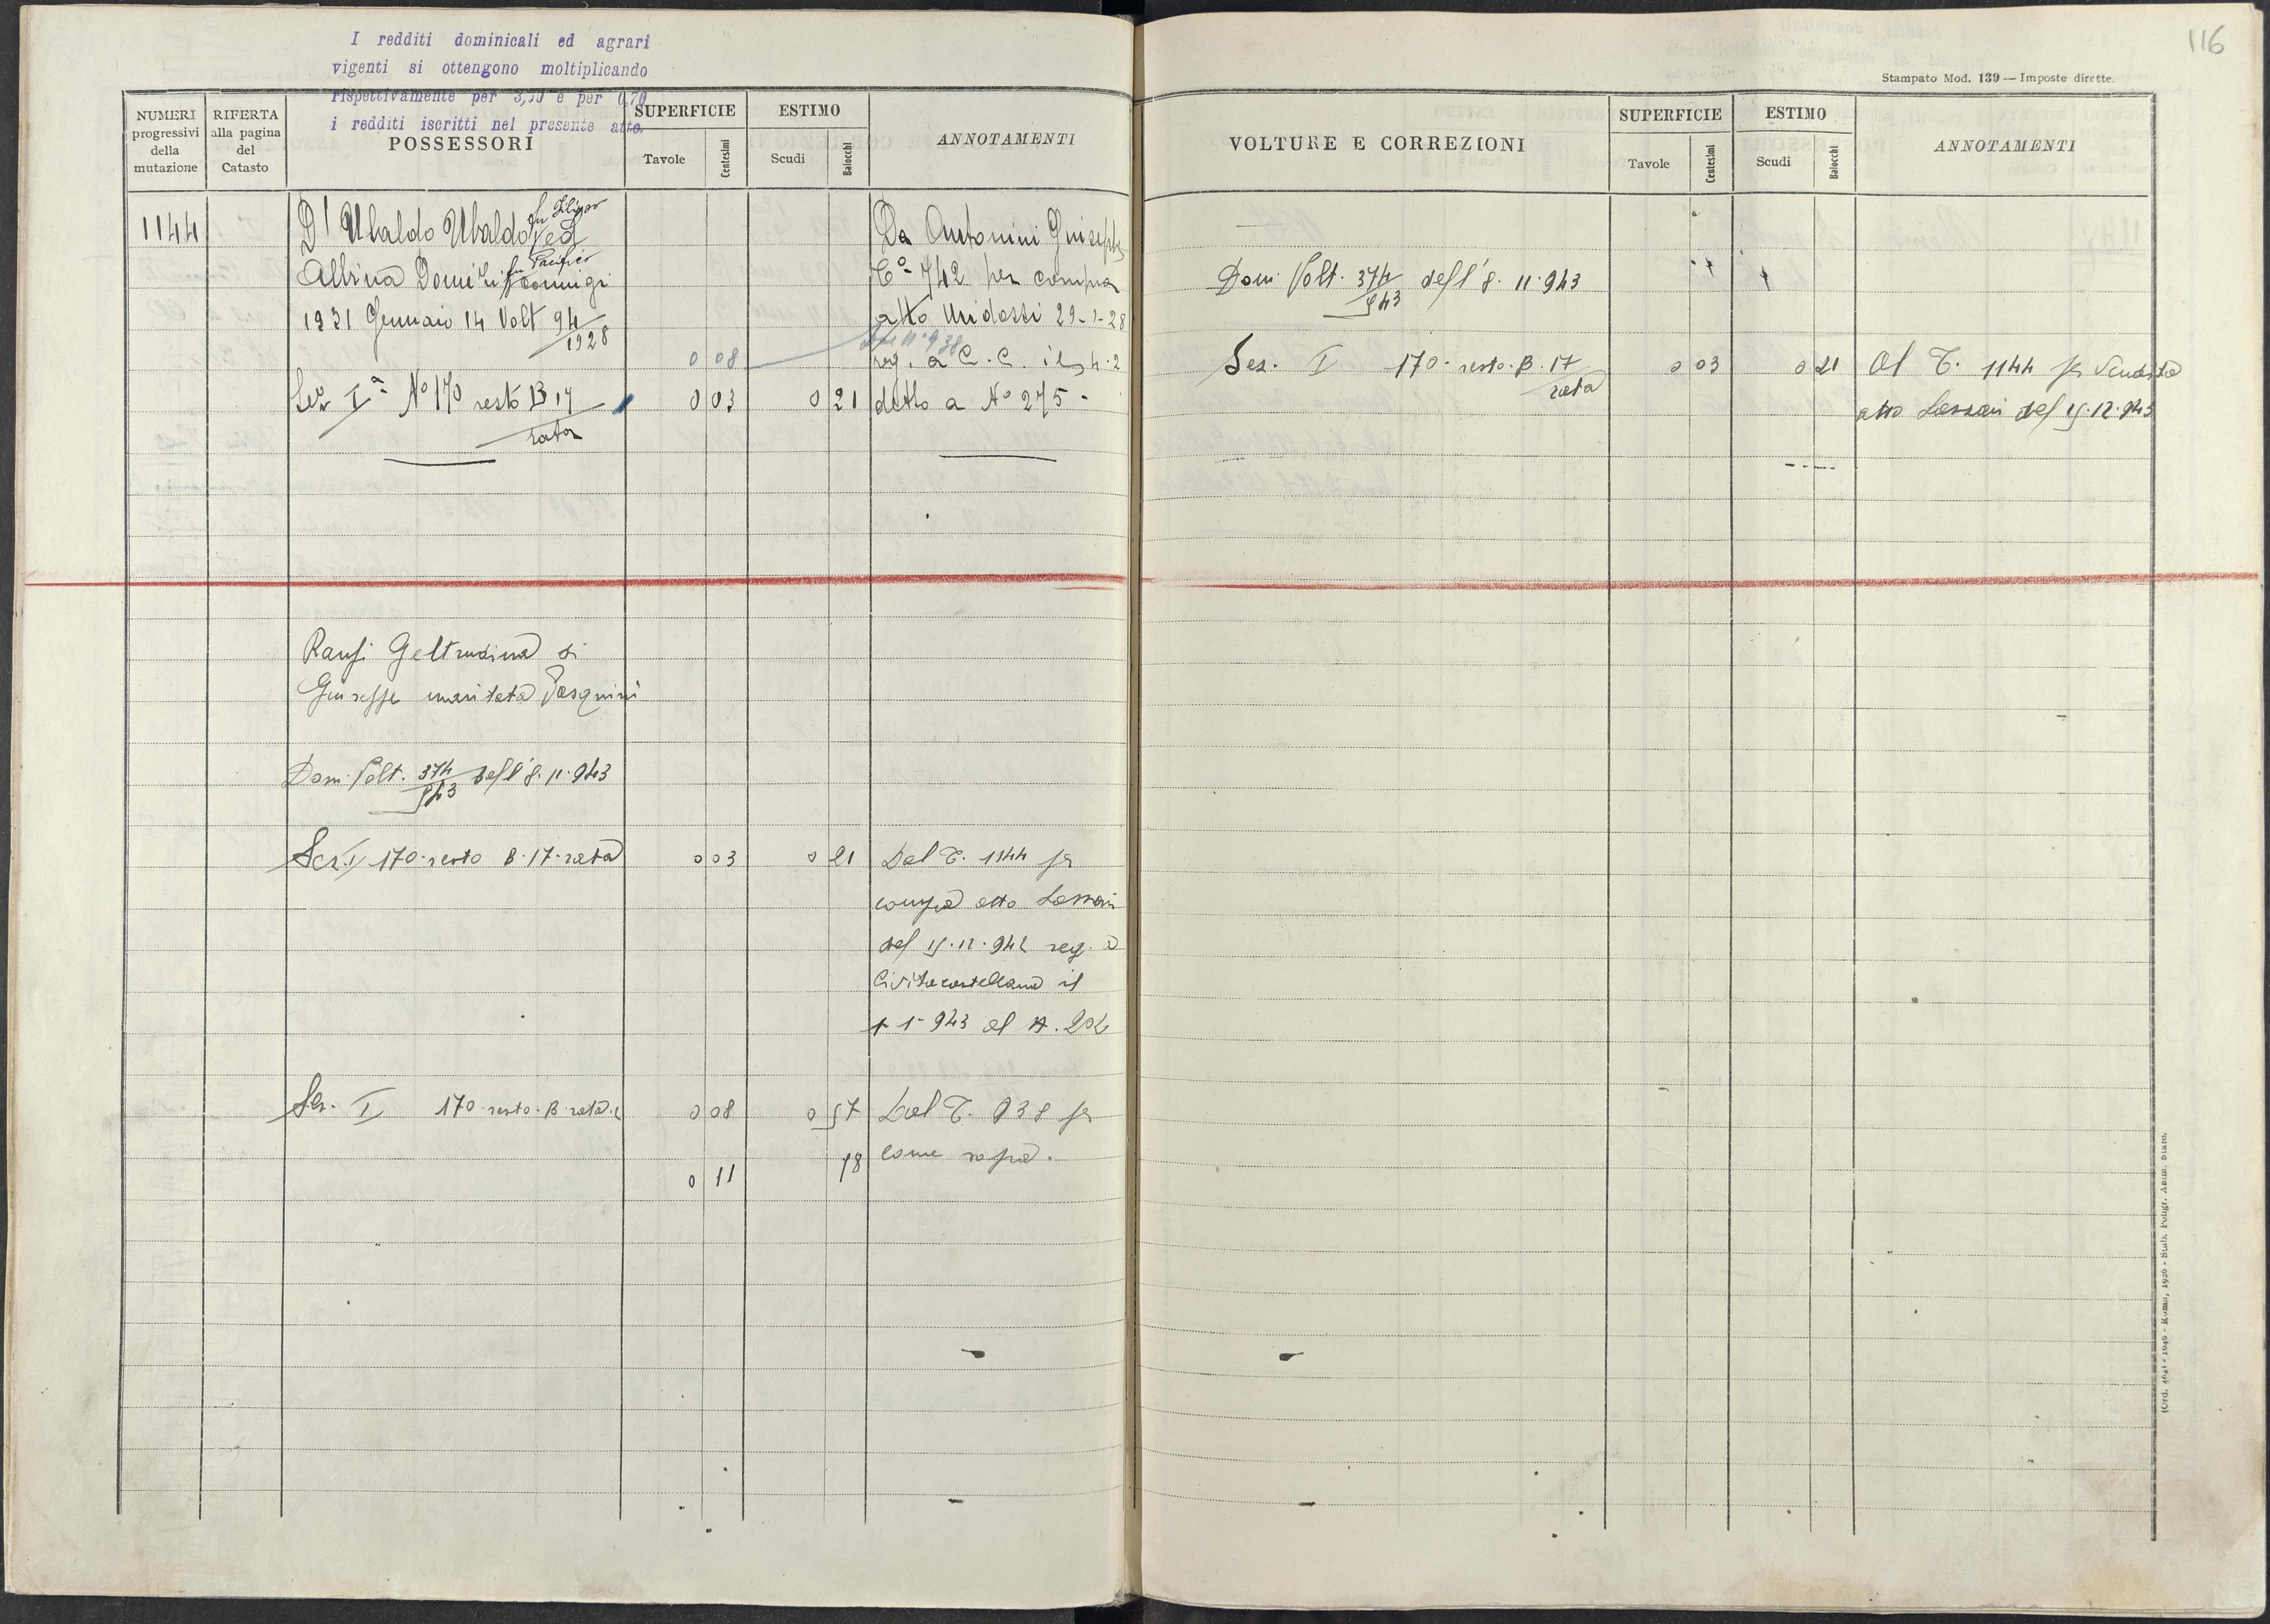 I redditi dominicali ed agrari
vigenti si ottengono moltiplicando
rispettivamente per e per 0,70
i redditi iscritti nel presente atto.
NUMERI progressivi della mutazione
RIFERTA alla pagina del Catasto
POSSESSORI
SUPERFICIE
Tavole
Centesimi
ESTIMO
Scudi
Baiocchi
ANNOTAMENTI
1144
D' Ubaldo Ubaldo
Da Antonini Giuseppe
Albina
742 per compra
1931 Gennaio 14 Volt 94/1928
atto 29-1-28
0 08
reg. a C.C. il 4.2
Sez Iª Nº 170 resto B 17 rata
0 03
0 21
detto a Nº 275-
Geltrudina di
Giuseppe maritata Pasquini
Dom. Volt. 374/943 dell'8.11.943
Sez. I 170 resto B.17 rata
0 03
0 21
Dal T. 1144 per
compra atto
del 12.942 reg. a
Civitacastellana il
1-943 al N.
Sez. I 170 resto B rata 2
0 08
0 57
Dal T. 938 per
come sopra.
0 11
78
116
Stampato Mod. 139 — Imposte dirette.
VOLTURE E CORREZIONI
SUPERFICIE
Tavole
Centesimi
ESTIMO
Scudi
Baiocchi
ANNOTAMENTI
Dom. Volt. 374/943 dell'8.11.943
Sez. I 170 resto B. 17 rata
0 03
0 21
Al T. 1144 per Vendita
atto del 12.943